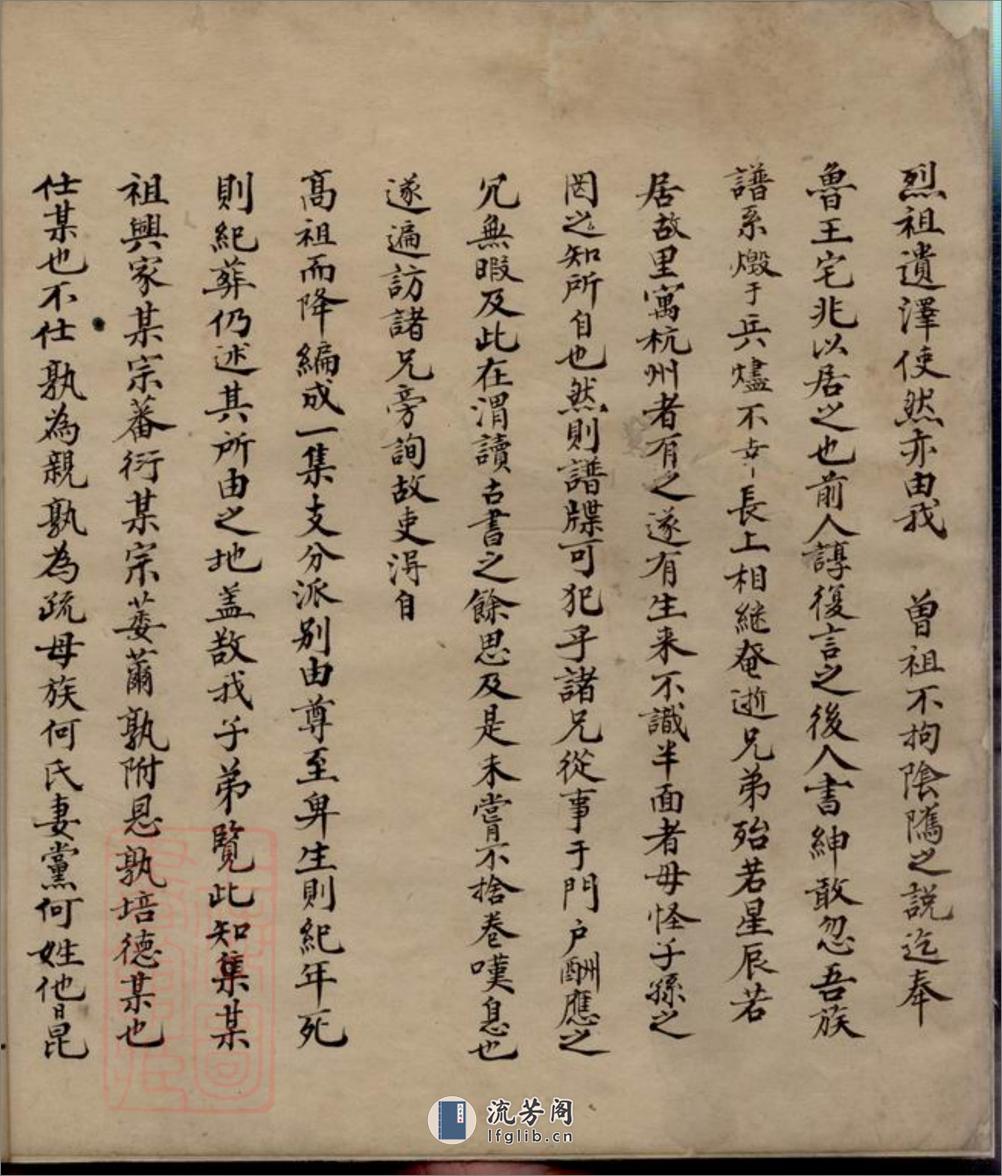 烈祖遺澤使然亦由我　曾祖不拘陰隲之說迄奉
魯王宅兆以居之也前人諄復言之後人書紳敢忽吾族
譜系燬于兵燼不幸長上相継奄逝兄弟殆若星辰若
居故里寓杭州者有之遂有生来不識半面者毋怪子孫之
罔之知所自也然則譜牒可犯乎諸兄從事于門户酬應之
冗無暇及此在渭讀古書之餘思及是未嘗不捨卷嘆息也
遂遍訪諸兄旁詢故吏淂自
髙祖而降編成一集支分派别由尊至卑生則紀年死
則紀葬仍述其所由之地盖欲我子弟覽此知集某
祖興家某宗蕃衍某宗萎薾孰附恩孰培德某也
仕某也不仕孰為親孰為疏母族何氏妻黨何姓他日昆
流芳阁
lfglib.cn